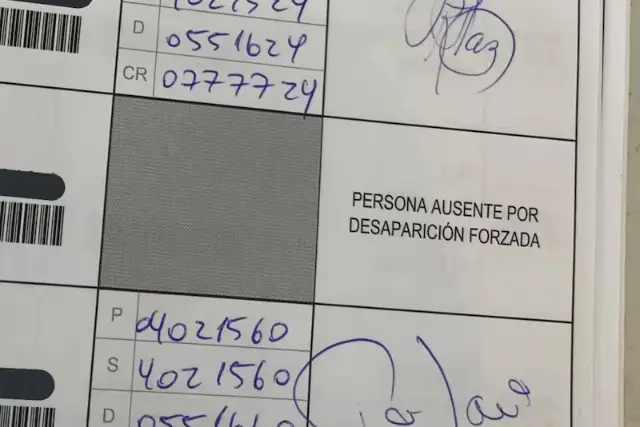 D 0551624
CR 0777724
PERSONA AUSENTE POR
DESAPARICIÓN FORZADA
P 04021560
S 4021560
D